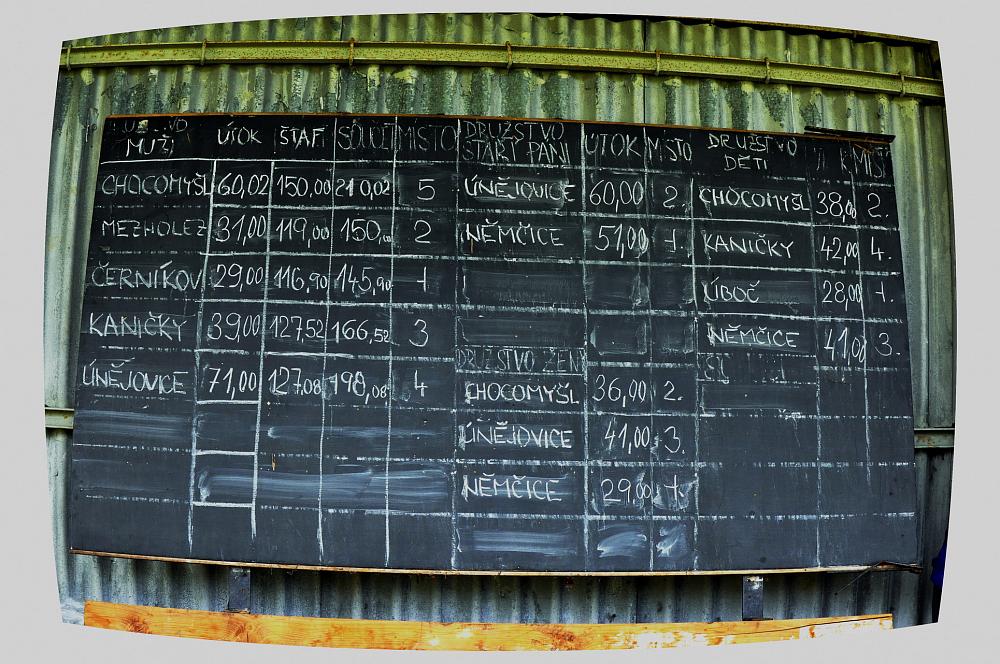 MUŽI ÚTOK ŠTAF. SOUČET MÍSTO
CHOCOMYŠL 60,02 150,00 210,02 5
MEZHOLEZ 31,00 119,00 150,00 2
ČERNÍKOV 29,00 116,90 145,90 1
KANIČKY 39,00 127,52 166,52 3
ÚNĚJOVICE 71,00 127,08 198,08 4
DRUŽSTVO
START PÁNI ÚTOK MÍSTO
ÚNĚJOVICE 60,00 2.
NĚMČICE 51,00 1.
DRUŽSTVO ŽENY
CHOCOMYŠL 36,00 2.
ÚNĚJOVICE 41,00 3.
NĚMČICE 29,00 1.
DRUŽSTVO
DĚTI MÍST
CHOCOMYŠL 38,00 2.
KANIČKY 42,00 4.
ÚBOČ 28,00 1.
NĚMČICE 41,00 3.